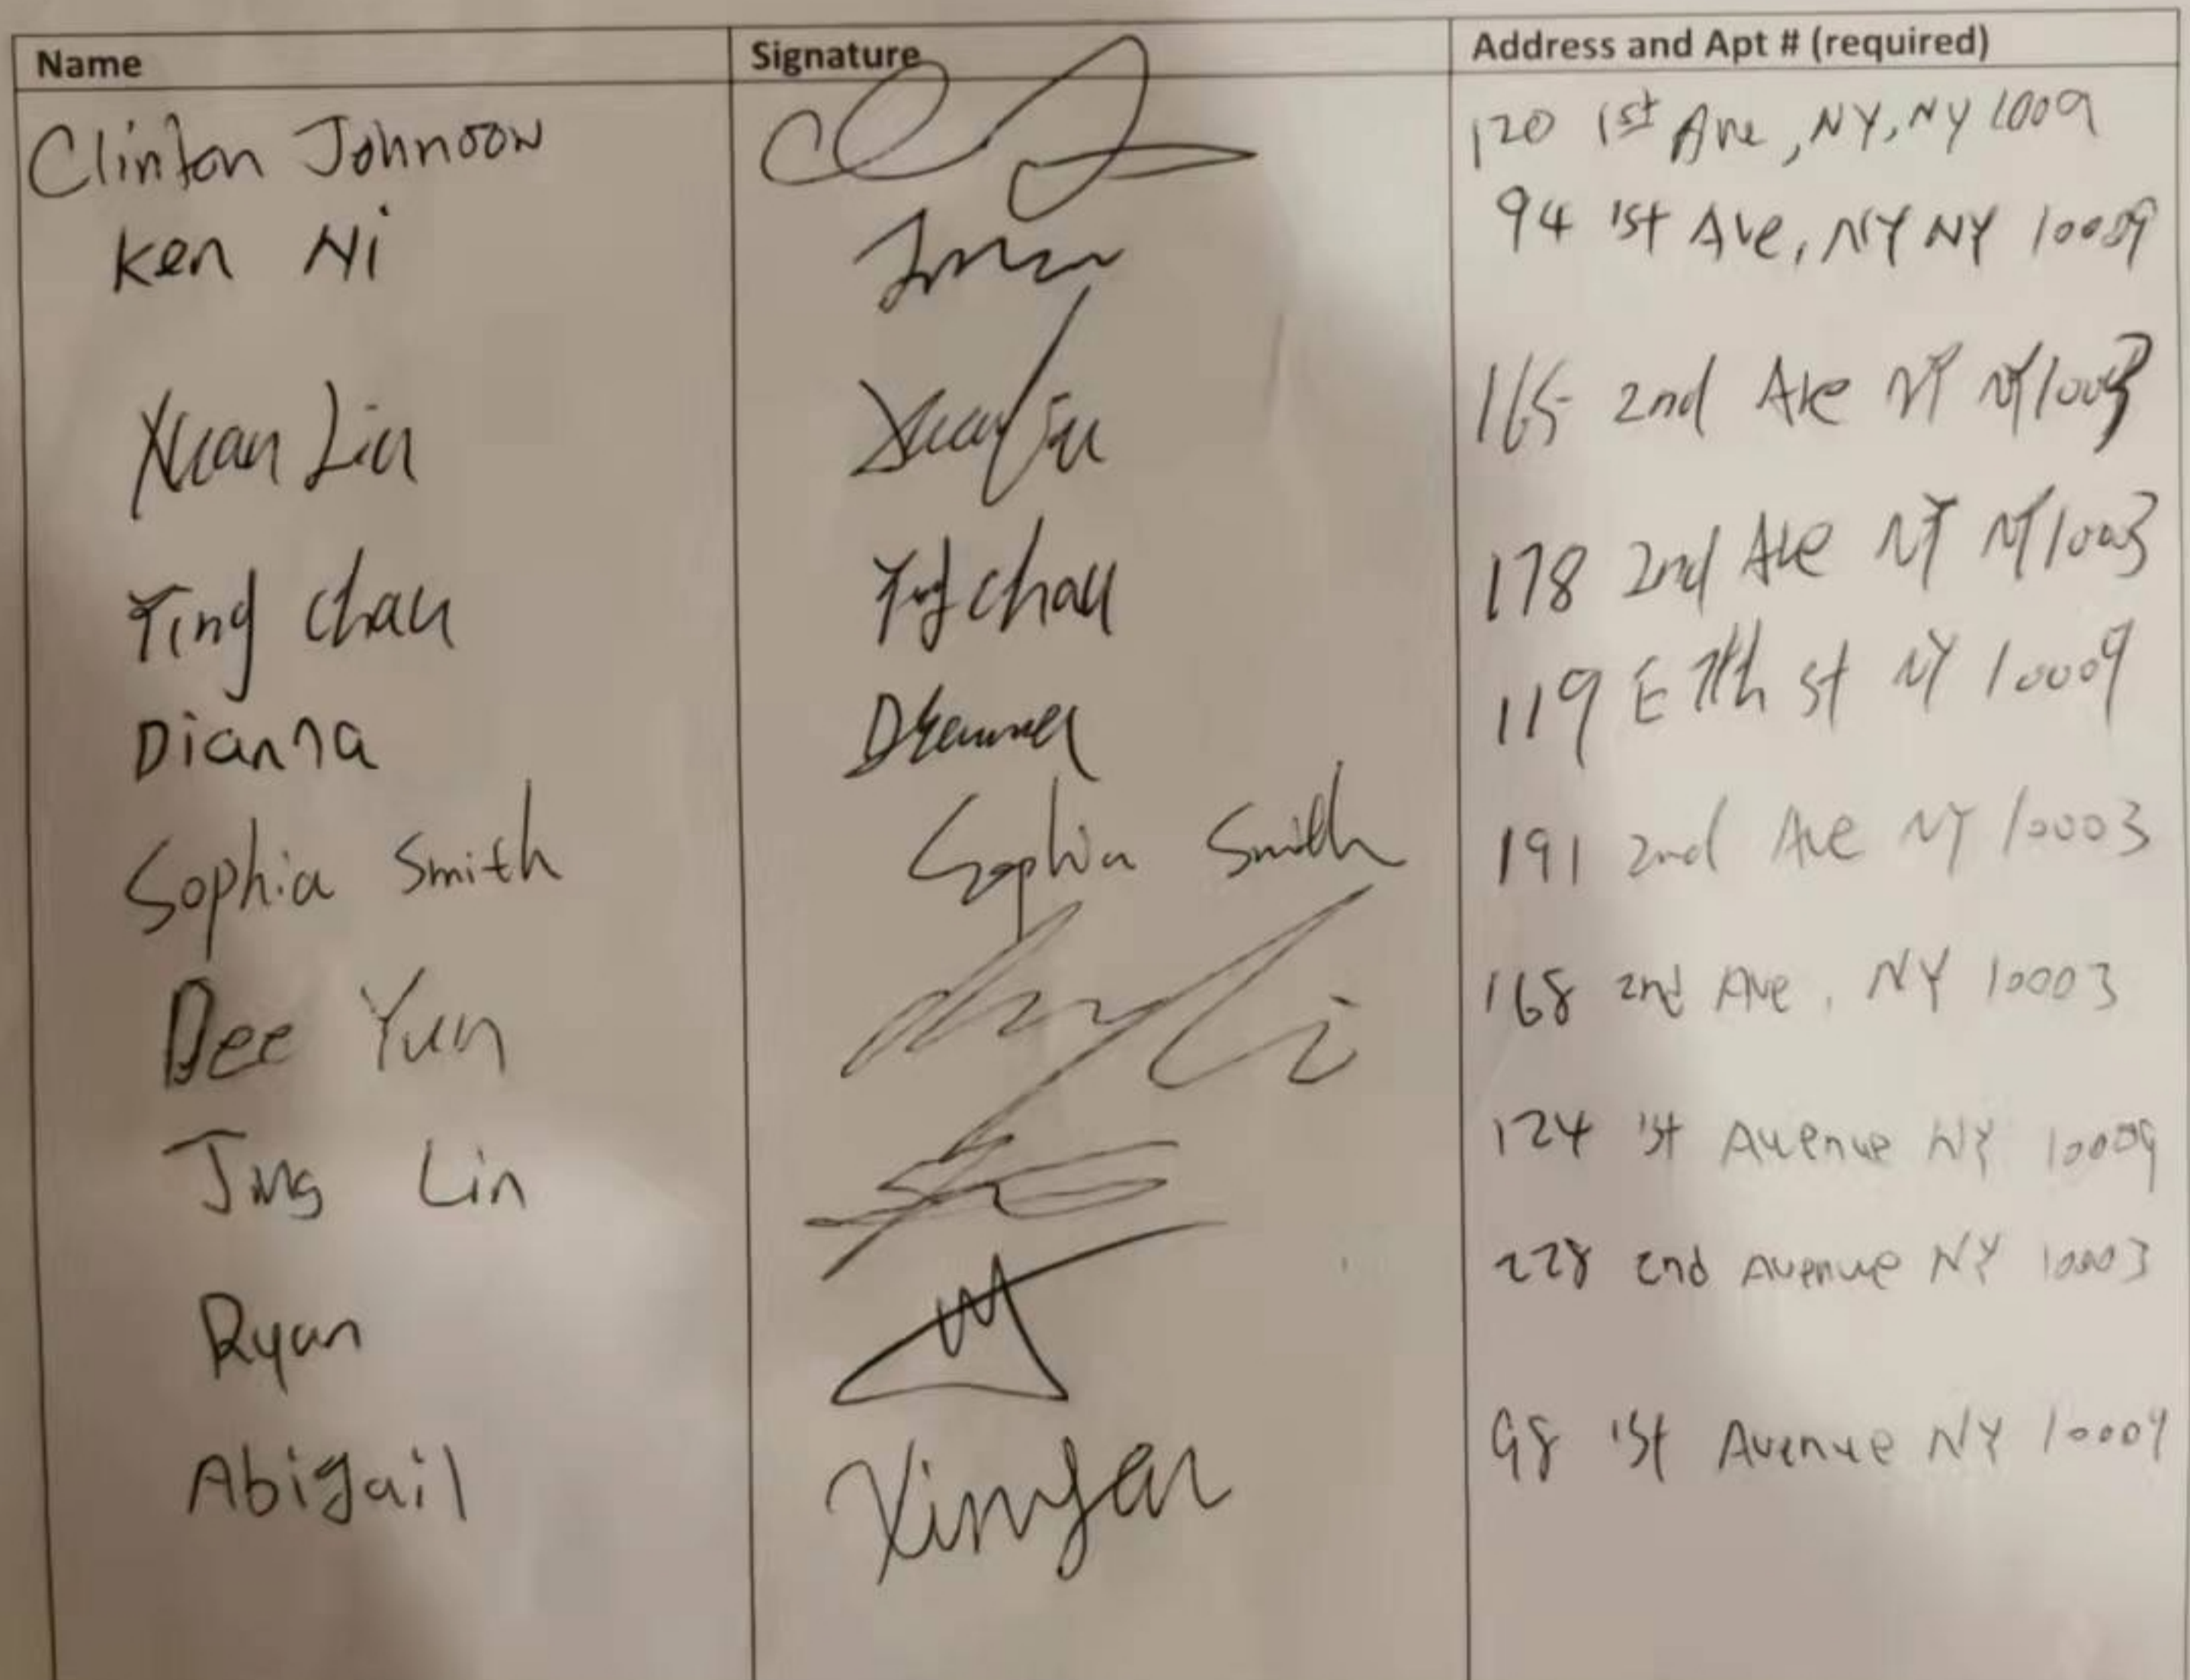 Name Signature Address and Apt # (required)
Clinton Johnson 120 1st Ave, NY, NY 1009
Ken Ni 94 1st Ave, NY NY 10009
Xuan Liu Xuan Liu 165 2nd Ave NY NY 10003
Ying Chau Ying Chau 178 2nd Ave NY NY 10003
Dianna Dianna 119 E 7th St NY 10009
Sophia Smith Sophia Smith 191 2nd Ave NY 10003
Dee Yun 168 2nd Ave, NY 10003
Jing Lin 124 1st Avenue NY 10009
Ryan 228 2nd Avenue NY 10003
Abigail 98 1st Avenue NY 10009